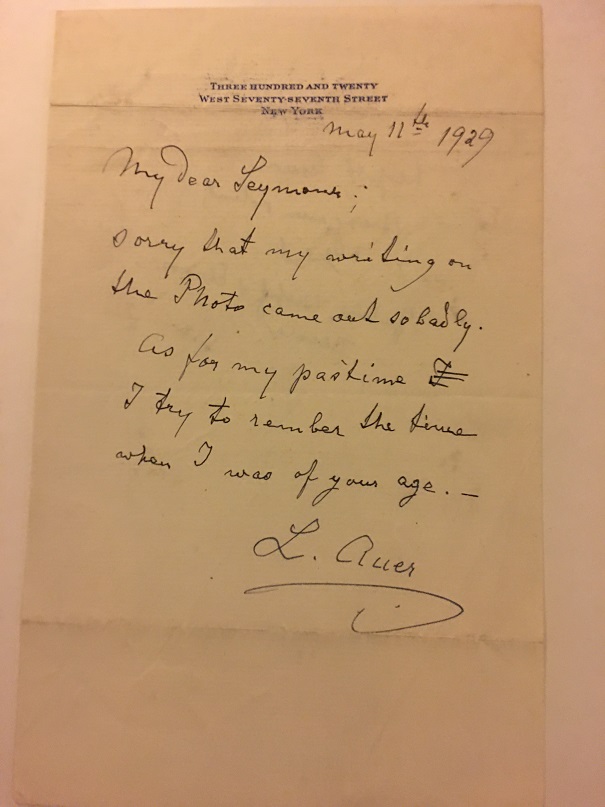 THREE HUNDRED AND TWENTY
WEST SEVENTY-SEVENTH STREET
NEW YORK
May 11th 1929
My Dear Seymour;
sorry that my writing on
the Photo came out so badly.
As for my pastime I
I try to rember the time
when I was of your age. —
L. Auer